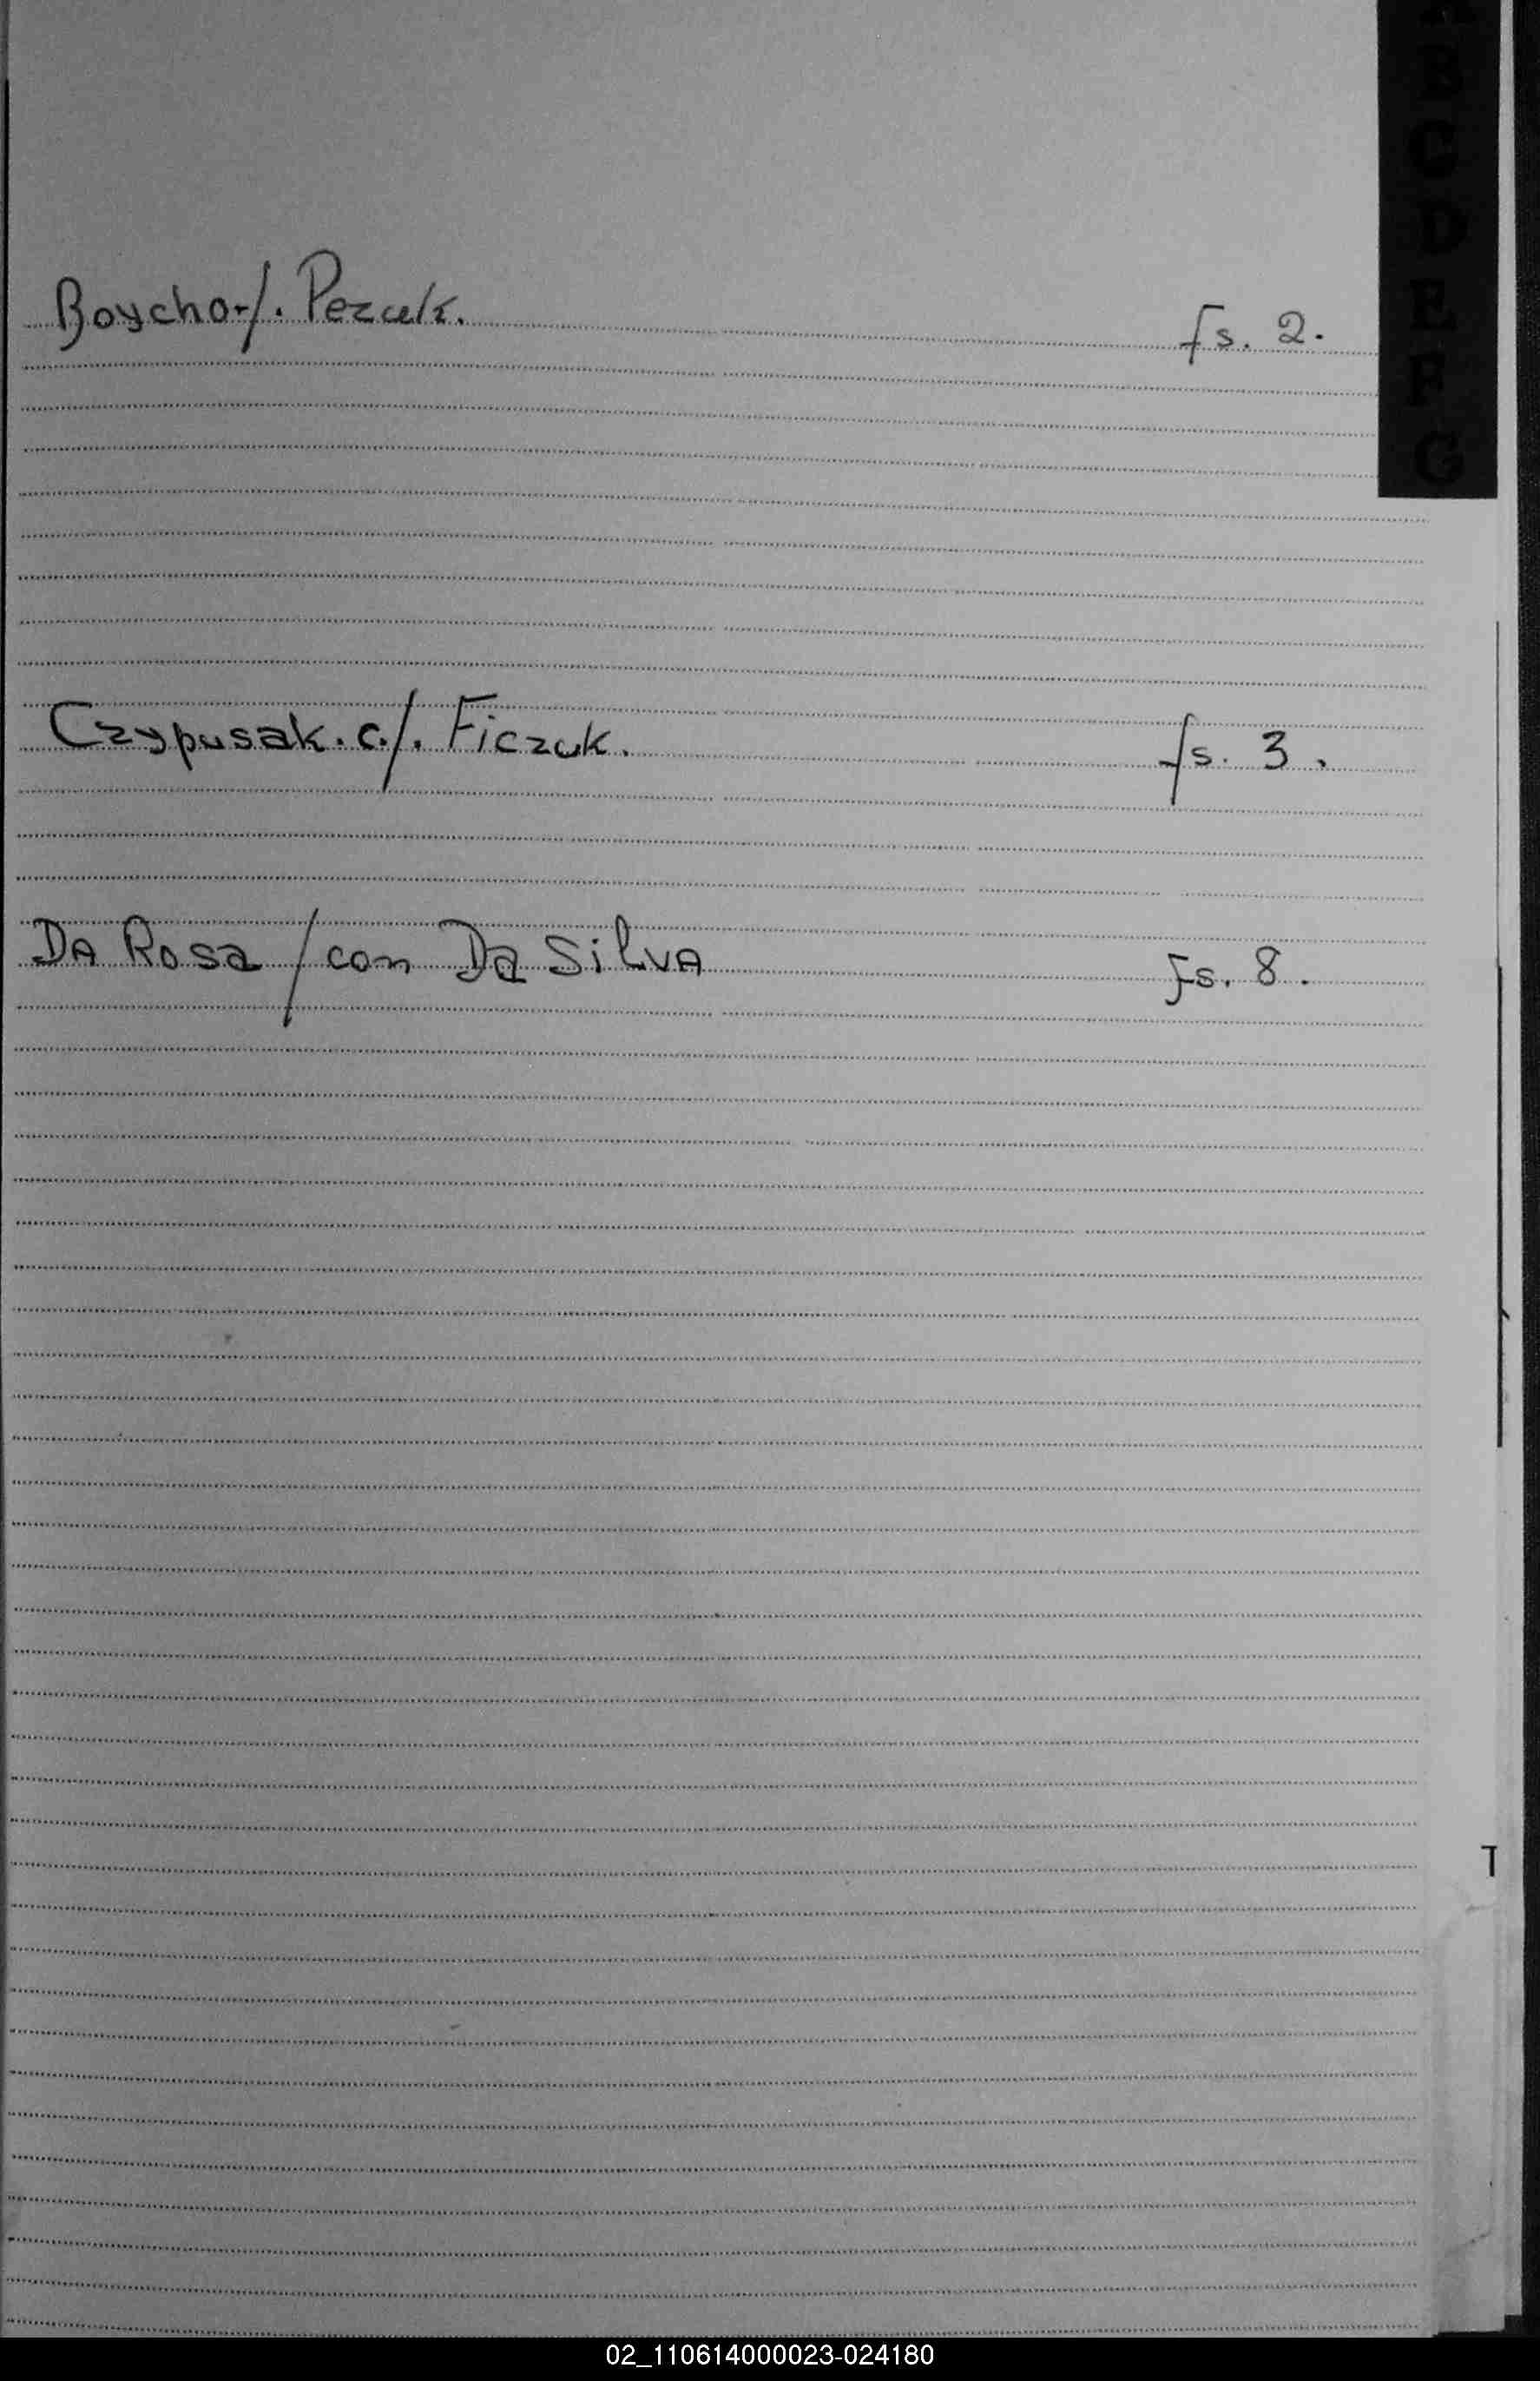 Boycho-/. Pezuk. fs. 2.
Czypusak. c./. Ficzuk. fs. 3.
DA Rosa / con Da SiLVA fs. 8.
B
C
D
E
F
G
T
02_110614000023-024180